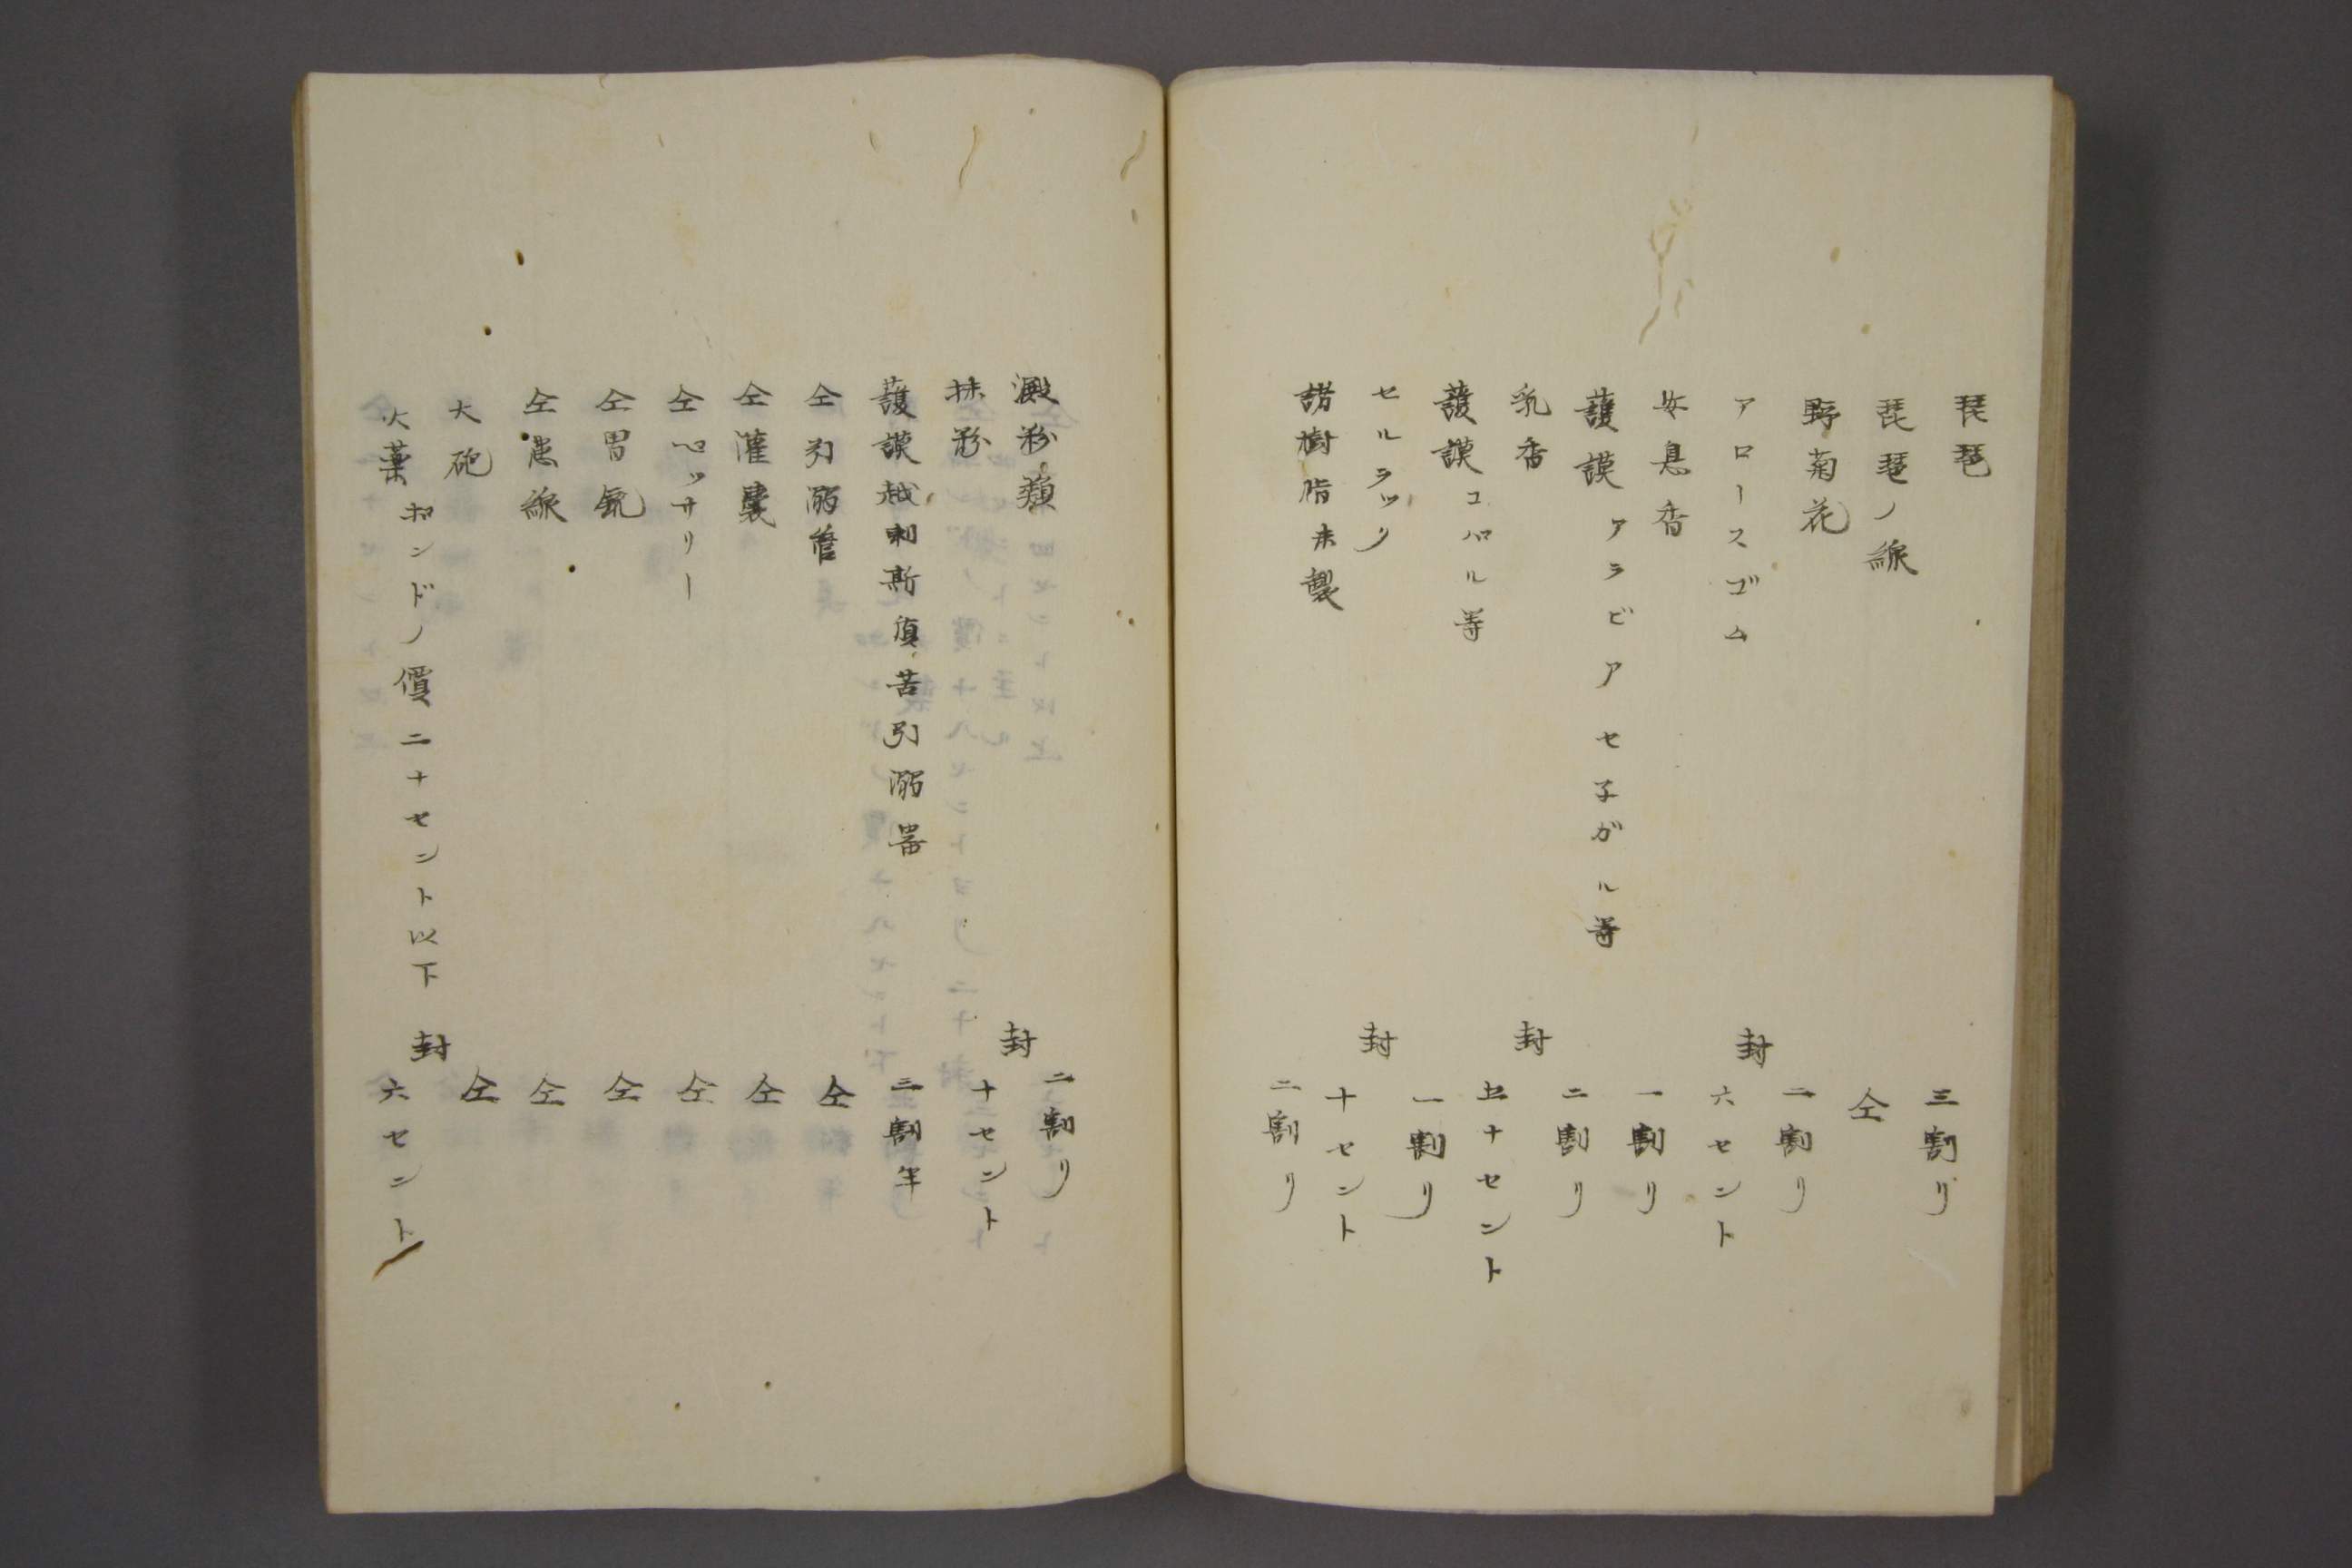 琵琶 三割リ
琵琶ノ線 仝
野菊花 二割リ
アロースゴム 封 六セント
安息香 一割リ
護謨アラビアセ子ガル等 二割リ
乳香 封 五十セント
護謨コパル等 一割リ
セルラック 封 十セント
諸樹脂未製 二割リ
澱粉類 二割リ
抹粉 封 十セント
護謨越刺斯 苦引溺器 三割半
仝引溺管 仝
仝灌嚢 仝
仝ペッサリー 仝
仝胃 仝
仝 線 仝
大砲 仝
火薬 ポンドノ價二十セント以下 封 六セント